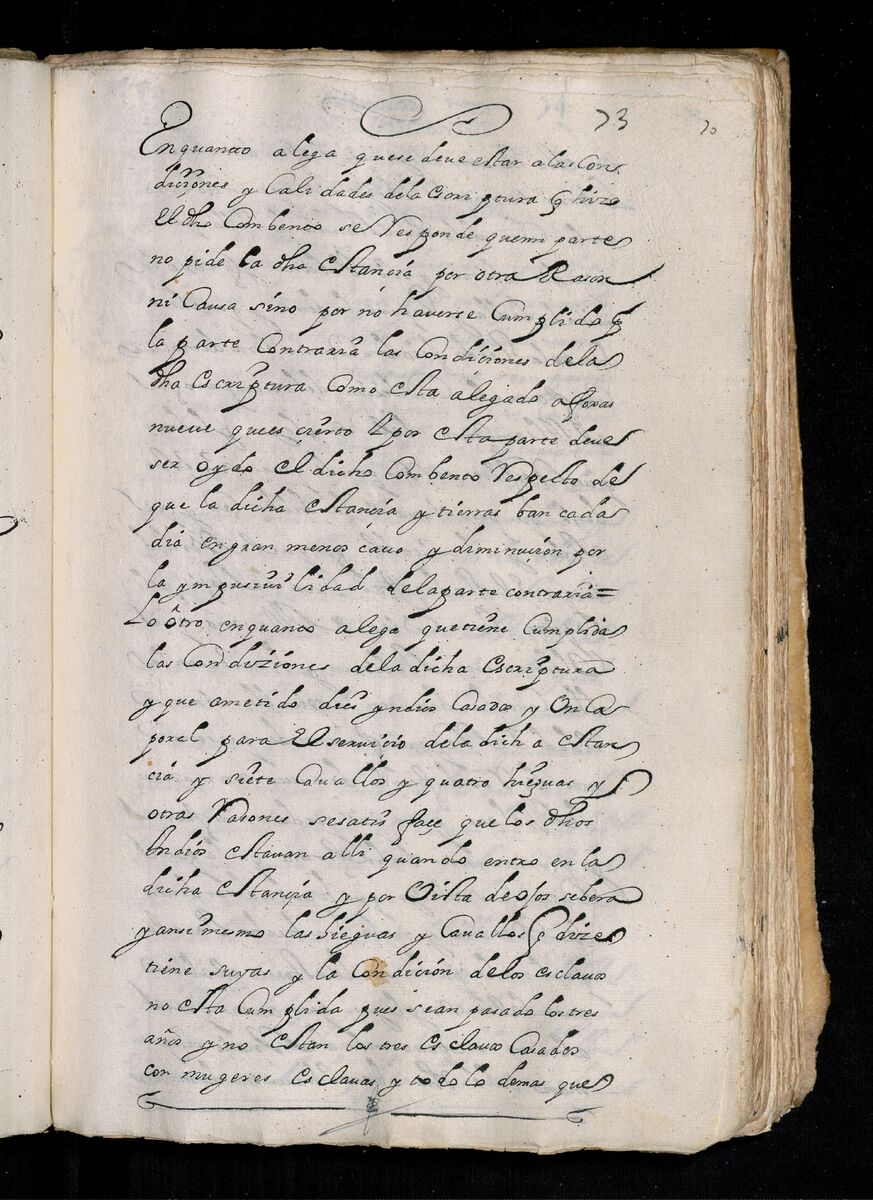 73 70
Enquanto alega quese deve estar alas Con
diciones y Calidades dela Escriptura q hizo
El dho Combento se Responde quemi parte
no pide la dha estancia por otra Rason
ni Causa sino por no haverse Cumplido p
la parte Contraria las Condiciones dela
dha Escriptura Como esta alegado a foxas
nueve quees cierto Y por esta parte deve
ser oydo el dicho Combento Respecto de
que la dicha estancia y tierras ban cada
dia en gran menos cavo y diminucion por
la ymposivilidad dela parte contraria=
Lo otro enquanto alega quetiene Cumplidas
las Condiziones dela dicha Escriptura
y que ametido dies yndios Casados y Un Ca
poral para El servicio dela dicha estan
cia y siete Cavallos y quatro hieguas y
otras Rasones sesatisface que los dhos
Indios estavan alli quando entro en la
dicha estancia y por Vista de ojos se bera
y ansimesmo las hieguas y Cavallos q dize
tiene suyas y la Condicion delos esclavos
no esta Cumplida pues sean pasado los tres
años y no estan los tres esclavos Casados
con mugeres esclavas y todo lo demas que